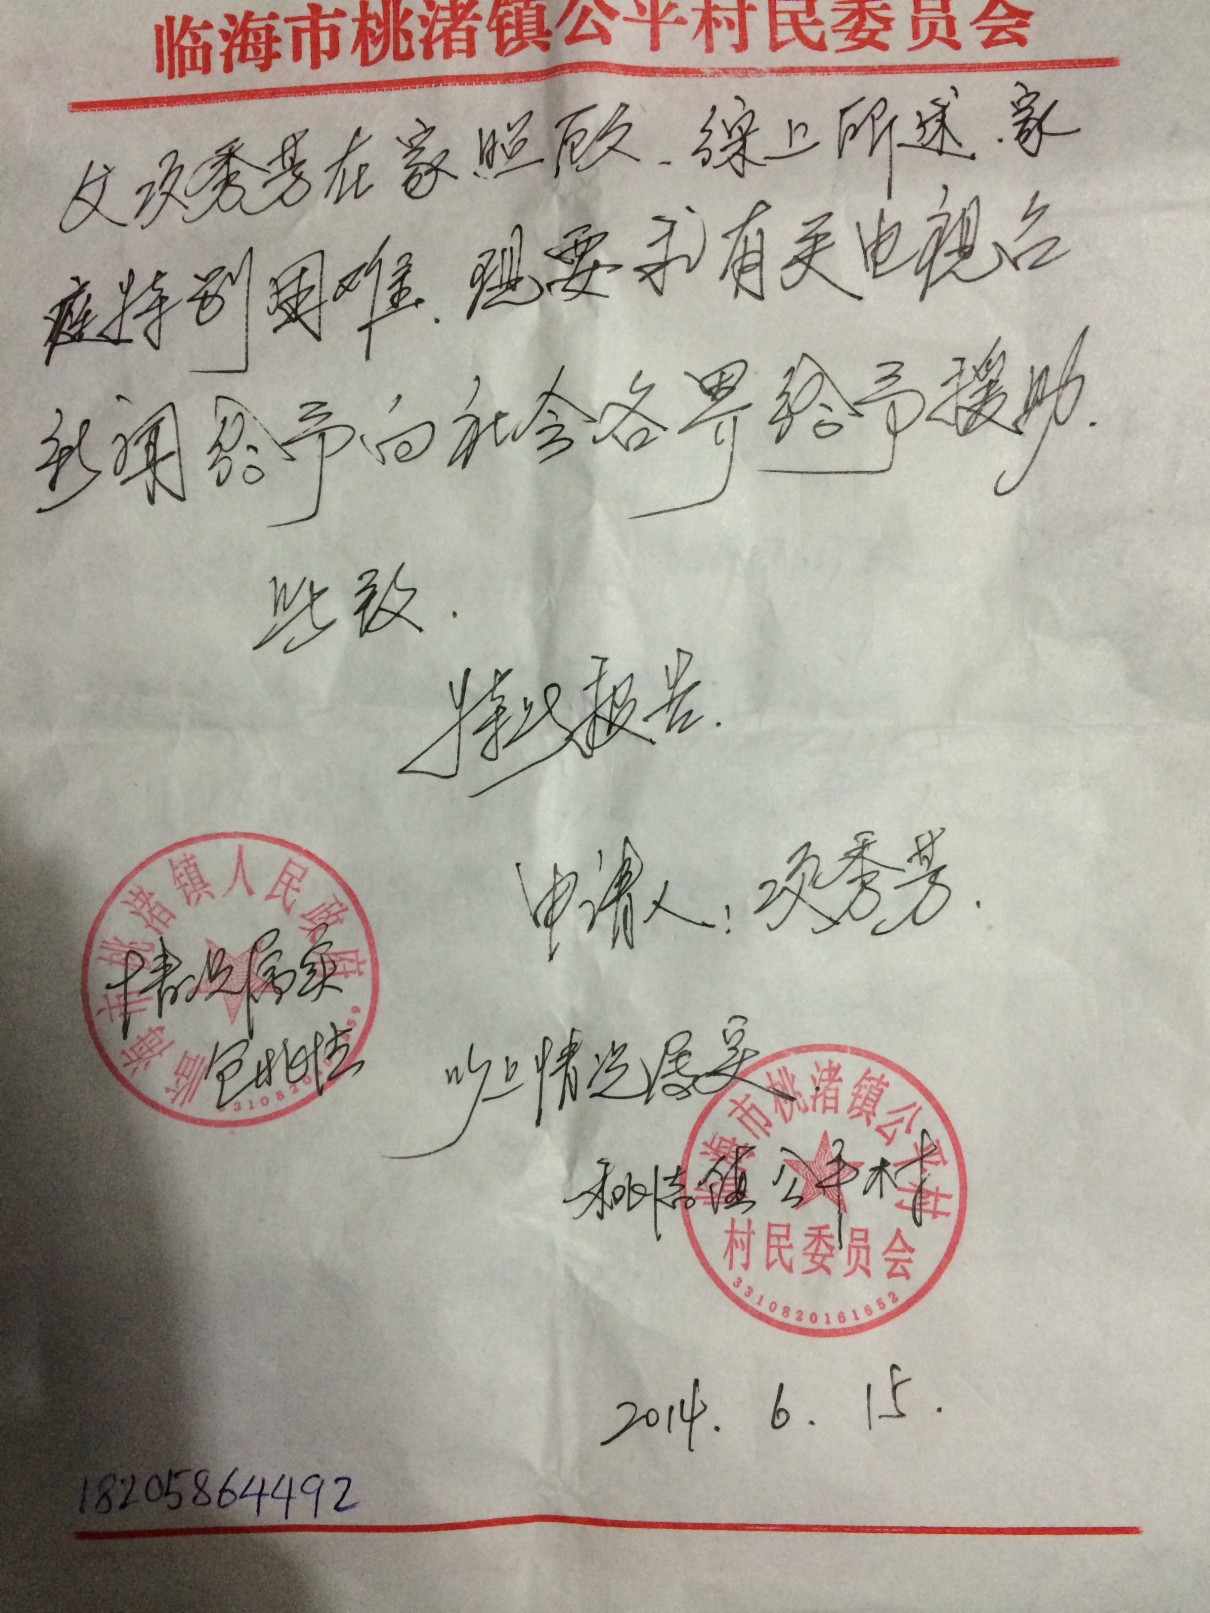 临海市桃渚镇公平村民委员会
女项秀芳在家照顾、综上所述、家
庭特别困难、现要求有关电视台
新闻给予向社会各界给予援助.
此致.
特此报告.
申请人:项秀芳.
临海市桃渚镇人民政府
情况属实
以上情况属实.
桃渚镇公平村
临海市桃渚镇公平村
村民委员会
3310820161652
2014. 6. 15.
18205864492